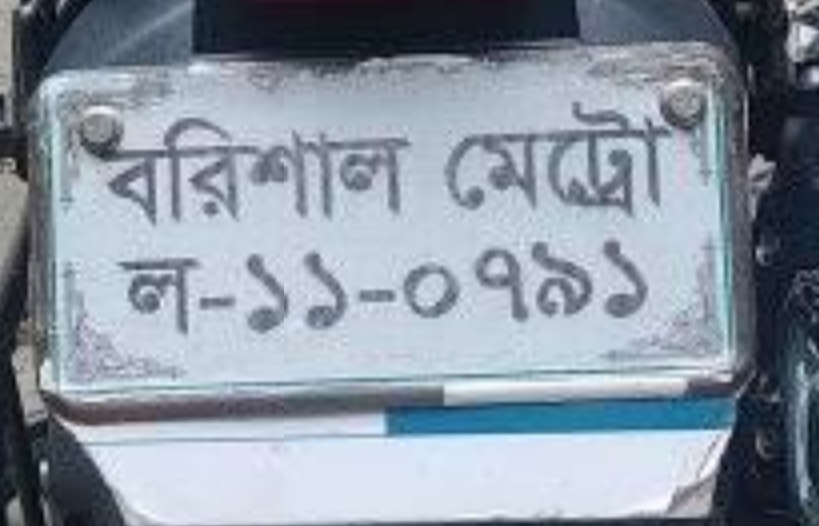 বরিশাল মেট্রো
ল-১১-০৭৯১